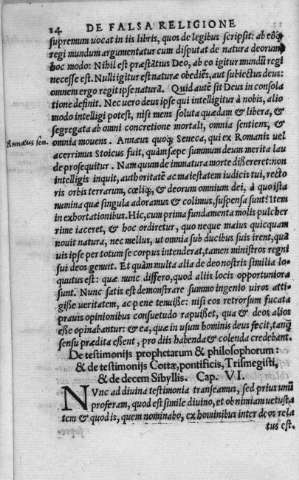 24 DE FALSA RELIGIONE
supremum vocat in iis libris, quos de legibus scripsit: ab eóq;
regi mundum argumentatur cum disputat de natura deorum
hoc modo: Nihil est præstātius Deo, ab eo igitur mundū regi
necesse est. Nulli igitur est naturæ obediēs, aut subiectus deus:
omnem ergo regit ipse naturā. Quid autē sit Deus in consola
tione definit. Nec vero deus ipse qui intelligitur à nobis, alio
modo intelligi potest, nisi mens soluta quædam & libera, &
segregata ab omni concretione mortali, omnia sentiens, &
omnia movens. Annæus quoq; Seneca, qui ex Romanis vel
acerrimus Stoicus fuit, quàm sæpe summum deum merita lau
de prosequitur. Nam quum de immatura morte dissereret: non
intelligis inquit, authoritatē ac maiestatem iudicis tui, recto
ris orbis terrarum, cœliq;, & deorum omnium dei, à quo ista
numina quæ singula adoramus & colimus, suspensa sunt? Item
in exhortationibus. Hic, cum prima fundamenta molis pulcher
rimæ iaceret, & hoc ordiretur, quo neque maius quicquam
novit natura, nec melius, ut omnia sub ducibus suis irent, quā
vis ipse per totum se corpus intenderat, tamen ministros regni
sui deos genuit. Et quàm multa alia de deo nostris similia lo
quutus est: quæ nunc differo, quod aliis locis opportuniora
sunt. Nunc satis est demonstrare summo ingenio viros atti-
gisse veritatem, ac pene tenuisse: nisi eos retrorsum fucata
pravis opinionibus consuetudo rapuisset, qua & deos alios
esse opinabantur: & ea, quæ in usum hominis deus fecit, tanq̄
sensu prædita essent, pro diis habenda & colenda credebant.
De testimonijs prophetarum & philosophorum:
& de testimonijs Cottæ, pontificis, Trismegisti,
& de decem Sibyllis. Cap. VI.
NVnc ad divina testimonia transeamus, sed prius unū
proferam, quod est simile divino, et ob nimiam vetusta
tem & quod is, quem nominabo, ex hominibus inter deos rela
tus est.